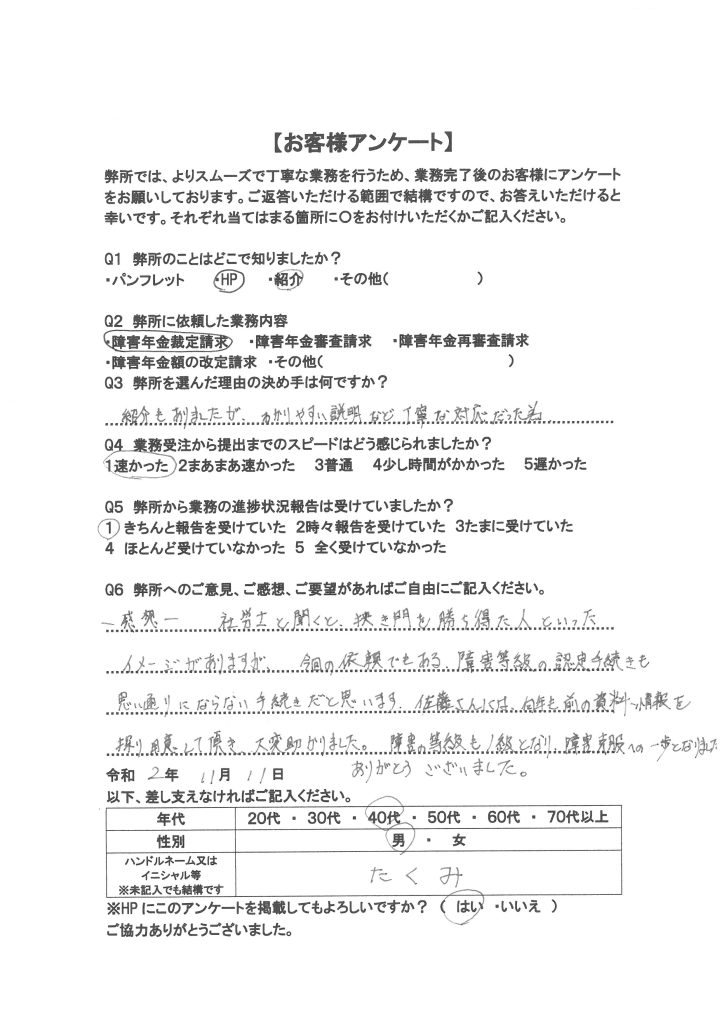 【お客様アンケート】
弊所では、よりスムーズで丁寧な業務を行うため、業務完了後のお客様にアンケート
をお願いしております。ご返答いただける範囲で結構ですので、お答えいただけると
幸いです。それぞれ当てはまる箇所に〇をお付けいただくかご記入ください。
Q1 弊所のことはどこで知りましたか？
・パンフレット ・HP ・紹介 ・その他( )
Q2 弊所に依頼した業務内容
・障害年金裁定請求 ・障害年金審査請求 ・障害年金再審査請求
・障害年金額の改定請求 ・その他( )
Q3 弊所を選んだ理由の決め手は何ですか？
紹介もありましたが、わかりやすい説明など丁寧な対応だった為
Q4 業務受注から提出までのスピードはどう感じられましたか？
1速かった 2まあまあ速かった 3普通 4少し時間がかかった 5遅かった
Q5 弊所から業務の進捗状況報告は受けていましたか？
1 きちんと報告を受けていた 2時々報告を受けていた 3たまに受けていた
4 ほとんど受けていなかった 5 全く受けていなかった
Q6 弊所へのご意見、ご感想、ご要望があればご自由にご記入ください。
ー感想ー 社労士と聞くと、狭き門を勝ち得た人といった
イメージがありますが、今回の依頼でもある、障害等級の認定手続きも
思い通りにならない手続きだと思います。佐藤さんには、何年も前の資料や情報を
掘り用意して頂き、大変助かりました。障害の等級も1級となり、障害克服への一歩となりました
ありがとうございました。
令和 2年 11月 11日
以下、差し支えなければご記入ください。
年代 20代 ・ 30代 ・ 40代 ・ 50代 ・ 60代 ・ 70代以上
性別 男 ・ 女
ハンドルネーム又は
イニシャル等 たくみ
※未記入でも結構です
※HPにこのアンケートを掲載してもよろしいですか？ （ はい ・いいえ ）
ご協力ありがとうございました。